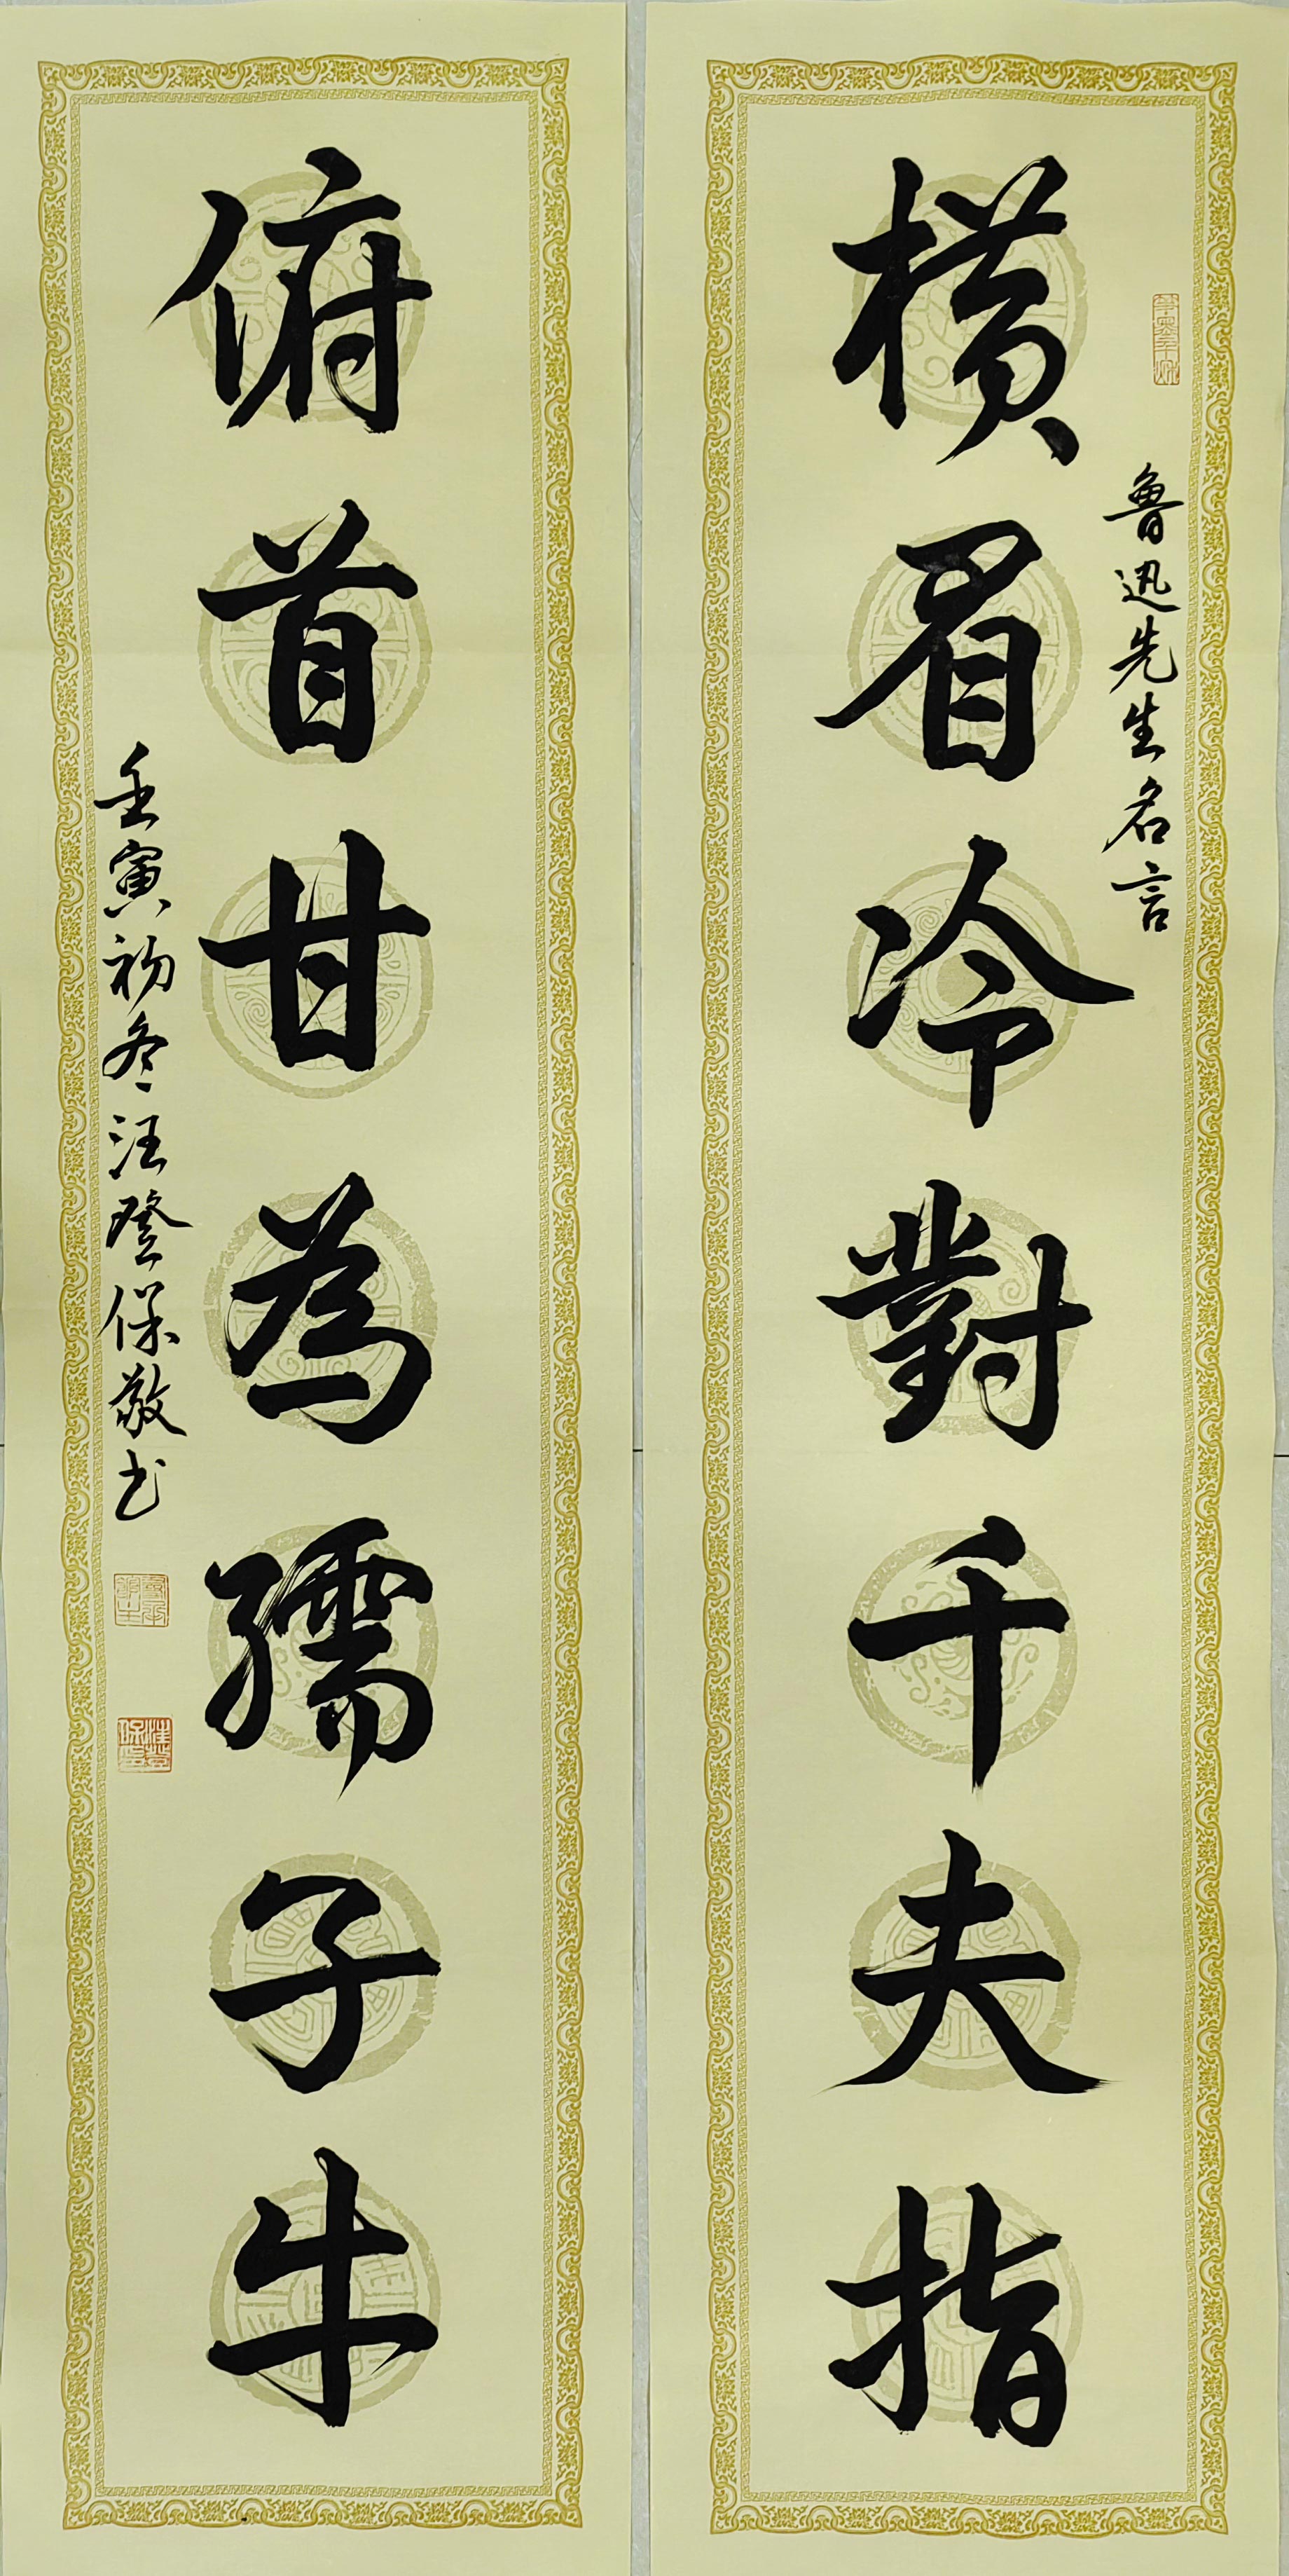 魯迅先生名言
橫眉冷對千夫指
俯首甘為孺子牛
壬寅初冬汪登保敬书